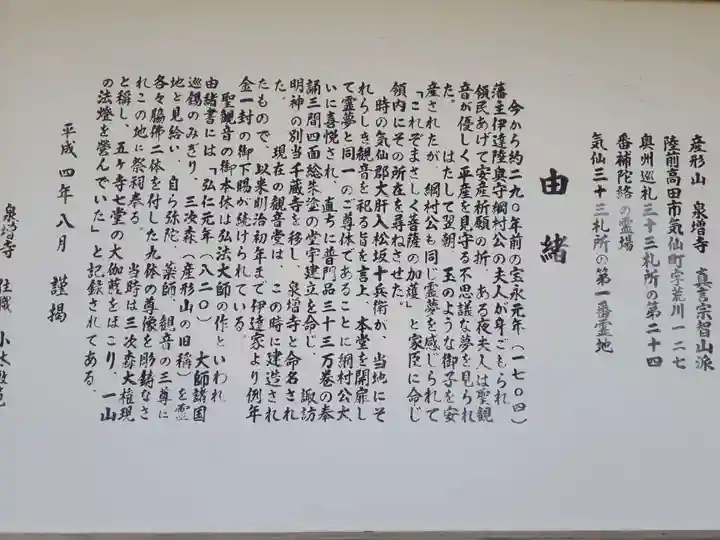 産形山 泉増寺 真言宗智山派
陸前高田市気仙町字荒川一二七
奥州巡礼三十三札所の第二十四
番補陀絡の霊場
気仙三十三札所の第一番霊地
由緒
今から約二九〇年前の宝永元年(一七〇四)
藩主伊達陸奥守綱村公の夫人が身ごもられ
領民あげて安産祈願の折、ある夜夫人は聖観
音が優しく平産を見守る不思議な夢を見られ
た。 はたして翌朝、玉のような御子を安
産されたが、綱村公も同じ霊夢を感じられて
「これぞまさしく菩薩の加護」と家臣に命じ
領内にその所在を尋ねさせた。
時の気仙郡大肝入松坂十兵衛が、当地にそ
れらしき観音を祀る旨を言上、本堂を開扉し
て霊夢と同一のご尊体であることに綱村公大
いに喜悦され、直ちに普門品三十三万巻の奉
誦三間四面総朱塗の堂宇建立を命じ、 諏訪
明神の別当千蔵寺を移し、泉増寺と命名され
た。 現在の観音堂は、この時に建造され
たもので、以来明治初年まで伊達家より例年
金一封の御下賜が続けられている。
聖観音の御本体は弘法大師の作といわれ
由緒書には「弘仁元年(八二〇) 大師諸国
巡錫のみぎり、三次森(産形山の旧称)を霊
地と見給い、自ら弥陀、薬師、観音の三尊に
各々脇佛二体を付した九体の尊像を彫鋳なさ
れこの地に祭祠奉る。 当時は三次森大権現
と称し、五ヶ寺七堂の大伽藍をほこり、一山
の法燈を営んでいた」と記録されてある。
平成四年八月 謹掲
泉増寺 住職 小林